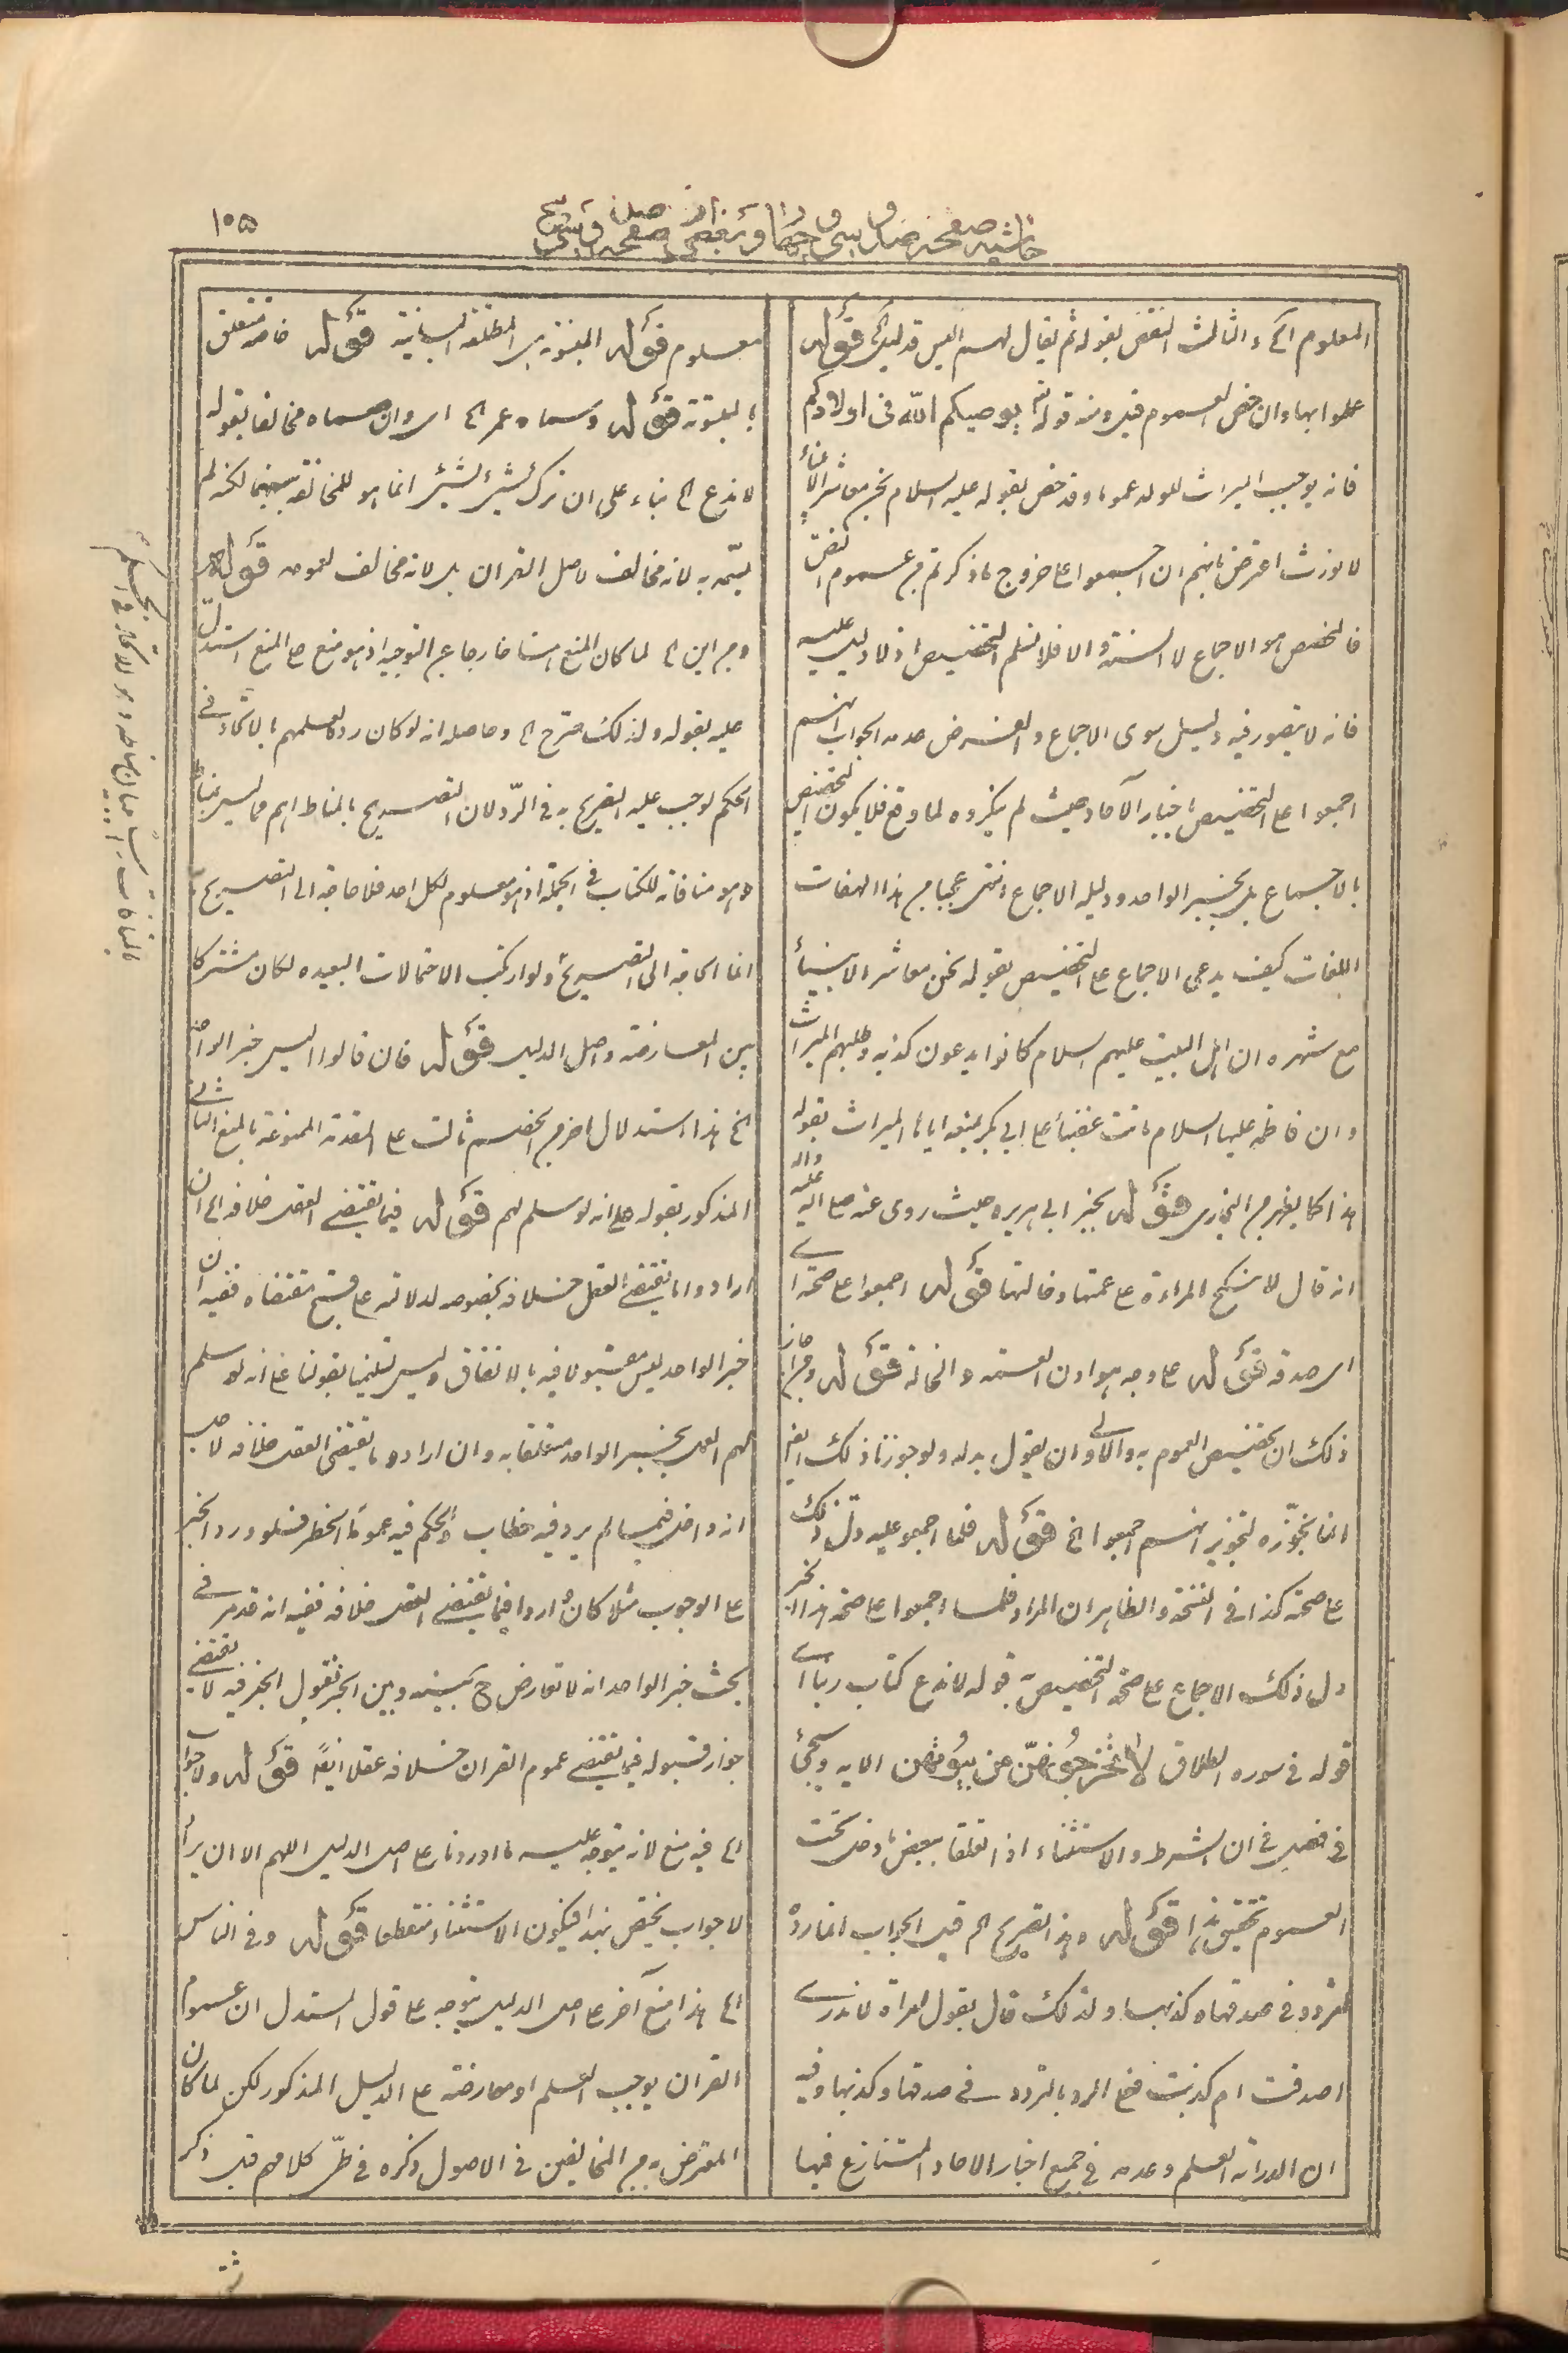 ١٥٥
المعلوم الخ والثالث النقض بقوله ثم يقال لهم اليس قد ليكم قوله
عملوا بها وان خص العموم قيل ومنه قوله تم يوصيكم الله فى اولادكم
فانه يوجب الميراث للولد عموما وقد خص بقوله عليه السلام نحن معاشر الانبياء
لا نورث اعترض بانهم ان اجمعوا على خروج ما ذكرتم من عموم النص
فالمخصص هو الاجماع لا السنة والا فلا نسلم التخصيص اذ لا دليل عليه
فانه لا يتصور فيه دليل سوى الاجماع والفرض عدمه الجواب انهم
اجمعوا على التخصيص باخبار الآحاد حيث لم ينكروه لما وقع فلا يكون التخصيص
بالاجماع بل بخبر الواحد ودليله الاجماع انتهى عجبا من هذا الهفات
اللغات كيف يدعى الاجماع على التخصيص بقوله نحن معاشر الانبياء
مع شهرة ان اهل البيت عليهم السلام كانوا يدعون كذبه وطلبهم الميراث
وان فاطمة عليها السلام ماتت غضبا على ابى بكر لمنعه اياها الميراث بقوله
هذا كما يظهر من البخارى قوله بخبر ابى هريره حيث روى عنه صلى الله عليه واله
انه قال لا ينكح المراءة على عمتها وخالتها قوله اجمعوا على صحته اے
اى صدقه قوله على وجه هوادن العمة والخالة قوله وجه انجاز
ذلك ان تخصيص العموم به والاولى ان يقول بدله ولو جوزنا ذلك ايضا
انما نجوّزه لتجويز انهم اجمعوا الخ قوله فلما اجمعوا عليه دل ذلك
على صحته كذا فى النسخة والظاهر ان المراد فلما اجمعوا على صحة هذا الخبر
دل ذلك الاجماع على صحة التخصيص به قوله لا ندع كتاب ربنا اے
قوله فى سوره الطلاق لا تُخْرِجُوهُنَّ مِن بُيُوتِهِن الايه ويجئ
فى فصل فى ان الشرط والاستثناء اذا تعلقا ببعض ما دخل تحت
العموم تحقيق هذا قوله وهذا تصريح الخ قيل الجواب انما رده
لتردد فى صدقها وكذبها ولذلك قال بقول امراة لا ندرے
اصدقت ام كذبت فعلل الرد بالتردد فى صدقها وكذبها وفيه
ان الدراية العلم وعدمه فى جميع اخبار الاحاد المتنازع فيها
معلوم قوله المبتوته هى المطلقة البائنة قوله خاصة متعلق
بالمبتوتة قوله وسماه عمر الخ اى وان سماه مخالفا بقوله
لا ندع الخ بناء على ان ترك شىء لشىء انما هو للمخالفة بينهما لكنه لم
يسمّه به لانه مخالف لاصل القران بل لانه مخالف لعمومه قوله
ومن اين الخ لما كان المنع هنا خارجا عن التوجيه اذ هو منع على المنع استدل
عليه بقوله ولذلك صرح الخ وحاصله انه لو كان رد كلهم بالآحاد فى
الحكم لوجب عليه التصريح به فى الرد لان التصريح بالمناط اهم مما ليس بمناط
وهو منافاته للكتاب فى الجملة اذ هو معلوم لكل احد فلا حاجة الى التصريح به
انما الحاجة الى التصريح ولو ارتكب الاحتمالات البعيده لكان مشتركا
بين المعارضة واصل الدليل قوله فان قالوا اليس خبر الواحد
الخ هذا استدلال اخر من الخصم ثالث على المقدمة الممنوعة بالمنع الثالث
المذكور بقوله على انه لو سلم لهم قوله فيما يقتضى العقل خلافه الخ ان
ارادوا ما يقتضى العقل خلافه بخصوصه لدلالته على قبح مقتضاه ففيه ان
خبر الواحد ليس مقبولا فيه بالاتفاق وليس تسليمنا بقولنا على انه لو سلم
لهم العمل بخبر الواحد متعلقا به وان ارادوا ما يقتضى العقل خلافه لاصل
انه داخل فيما لم يرد فيه خطاب والحكم فيه عموما الحظر فلو ورد الخبر
على الوجوب مثلا كان واردا فيما يقتضى العقل خلافه ففيه انه قد مر فى
بحث خبر الواحد انه لا تعارض ح بينه وبين الخبر فقبول الخبر فيه لا يقتضى
جواز قبوله فيما يقتضى عموم القران خلافه عقلا ايضا قوله ولا جواب
الخ فيه منع لانه يتوجه عليه ما اوردناه على اصل الدليل اللهم الا ان يراد
لا جواب يختص بهذا فيكون الاستثناء منقطعا قوله وفى الناس
الخ هذا منع آخر على اصل الدليل يتوجه على قول المستدل ان عموم
القران يوجب العلم او معارضة على الدليل المذكور لكن لما كان
المعترض به من المخالفين فى الاصول ذكره فى طىّ كلامهم قبل ذكر